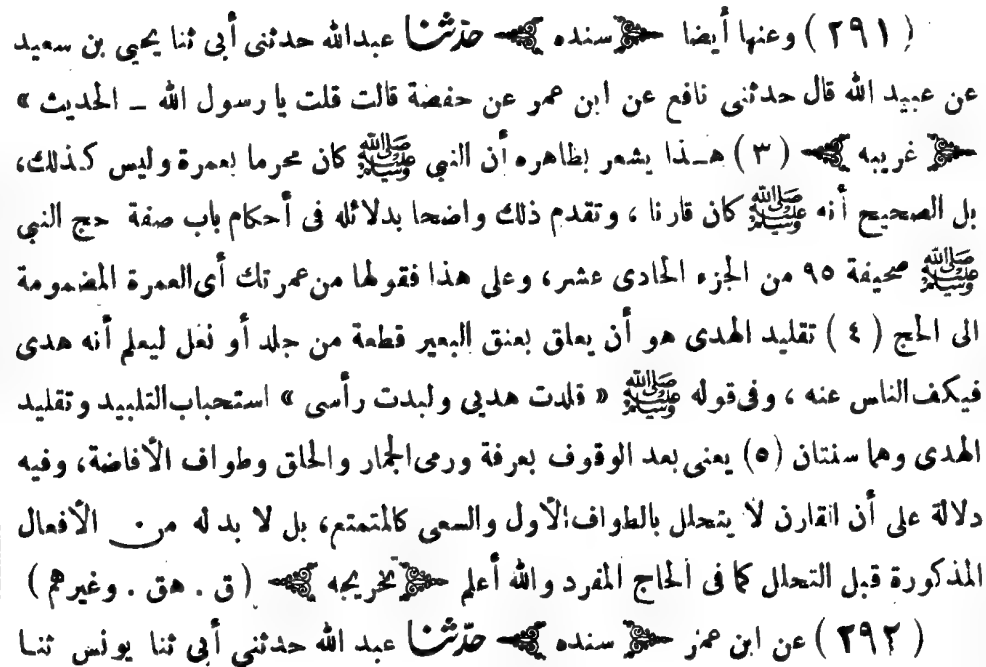 ( ٢٩١ ) وعنها أيضا ﴿ سنده ﴾ حدّثنا عبدالله حدثنى أبى ثنا يحيى بن سعيد
عن عبيد الله قال حدثنى نافع عن ابن عمر عن حفصة قالت قلت يا رسول الله ـ الحديث »
﴿ غريبه ﴾ ( ٣ ) هـذا يشعر بظاهره أن النبى ﷺ كان محرما بعمرة وليس كـذلك،
بل الصحيح أنه ﷺ كان قارنا ، وتقدم ذلك واضحا بدلائله فى أحكام باب صفة حج النبى
ﷺ صحيفة ٩٥ من الجزء الحادى عشر، وعلى هذا فقولها من عمرتك أى العمرة المضمومة
الى الحج ( ٤ ) تقليد الهدى هو أن يعلق بعنق البعير قطعة من جلد أو نعل ليعلم أنه هدى
فيكف الناس عنه ، وفى قوله ﷺ « قلدت هديى ولبدت رأسى » استحباب التلبيد وتقليد
الهدى وهما سنتان (٥) يعنى بعد الوقوف بعرفة ورمى الجمار والحلق وطواف الأفاضة، وفيه
دلالة على أن القارن لا يتحلل بالطواف الأول والسعى كالمتمتع، بل لا بد له من الأفعال
المذكورة قبل التحلل كما فى الحاج المفرد والله أعلم ﴿ تخريجه ﴾ ( ق . هق . وغيرهم )
( ٢٩٢ ) عن ابن عمر ﴿ سنده ﴾ حدّثنا عبد الله حدثنى أبى ثنا يونس ثنـا